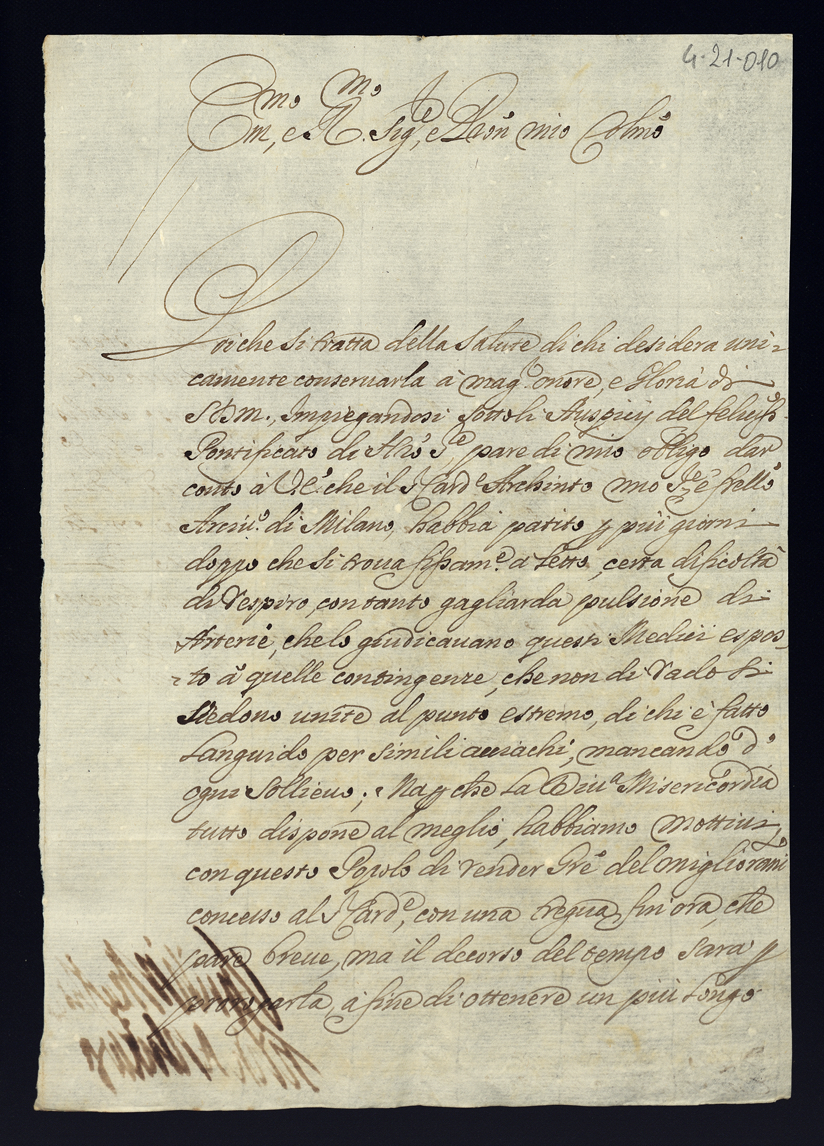 4-21-010
Em.mo, e R.mo Sig.re, e Pron mio Colmo
Poiche si tratta della salute di chi desidera uni-
camente conseruarla à mag.r onore, e Gloria di
S. D. M., Impiegandosi sotto li Auspicij del felicis.o
Pontificato di S.re, pare di mio obligo dar
conto à V. E. che il S. Card.e Archinto mio Sig.re e frello
Arciu.o di Milano, habbia patito p più giorni
doppo che si troua fissam.e à Letto, certa dificoltà
di Respiro, con tanto gagliarda pulsione di
Arterie, che lo giudicauano questi Medici espos-
-to à quelle contingenze, che non di rado si
uedono unite al punto estremo, di chi è fatto
Languido per simili acciachi, mancando d'
ogni Sollieuo; Ma p che La Diu.a Misericordia
tutto dispone al meglio, habbiamo mottiui,
con questo Popolo di render Gre del miglioram.to
concesso al S. Card.e, con una tregua fin ora, che
pare breue, ma il decorso del tempo sara p
prorogarla, à fine di ottenere un più Longo